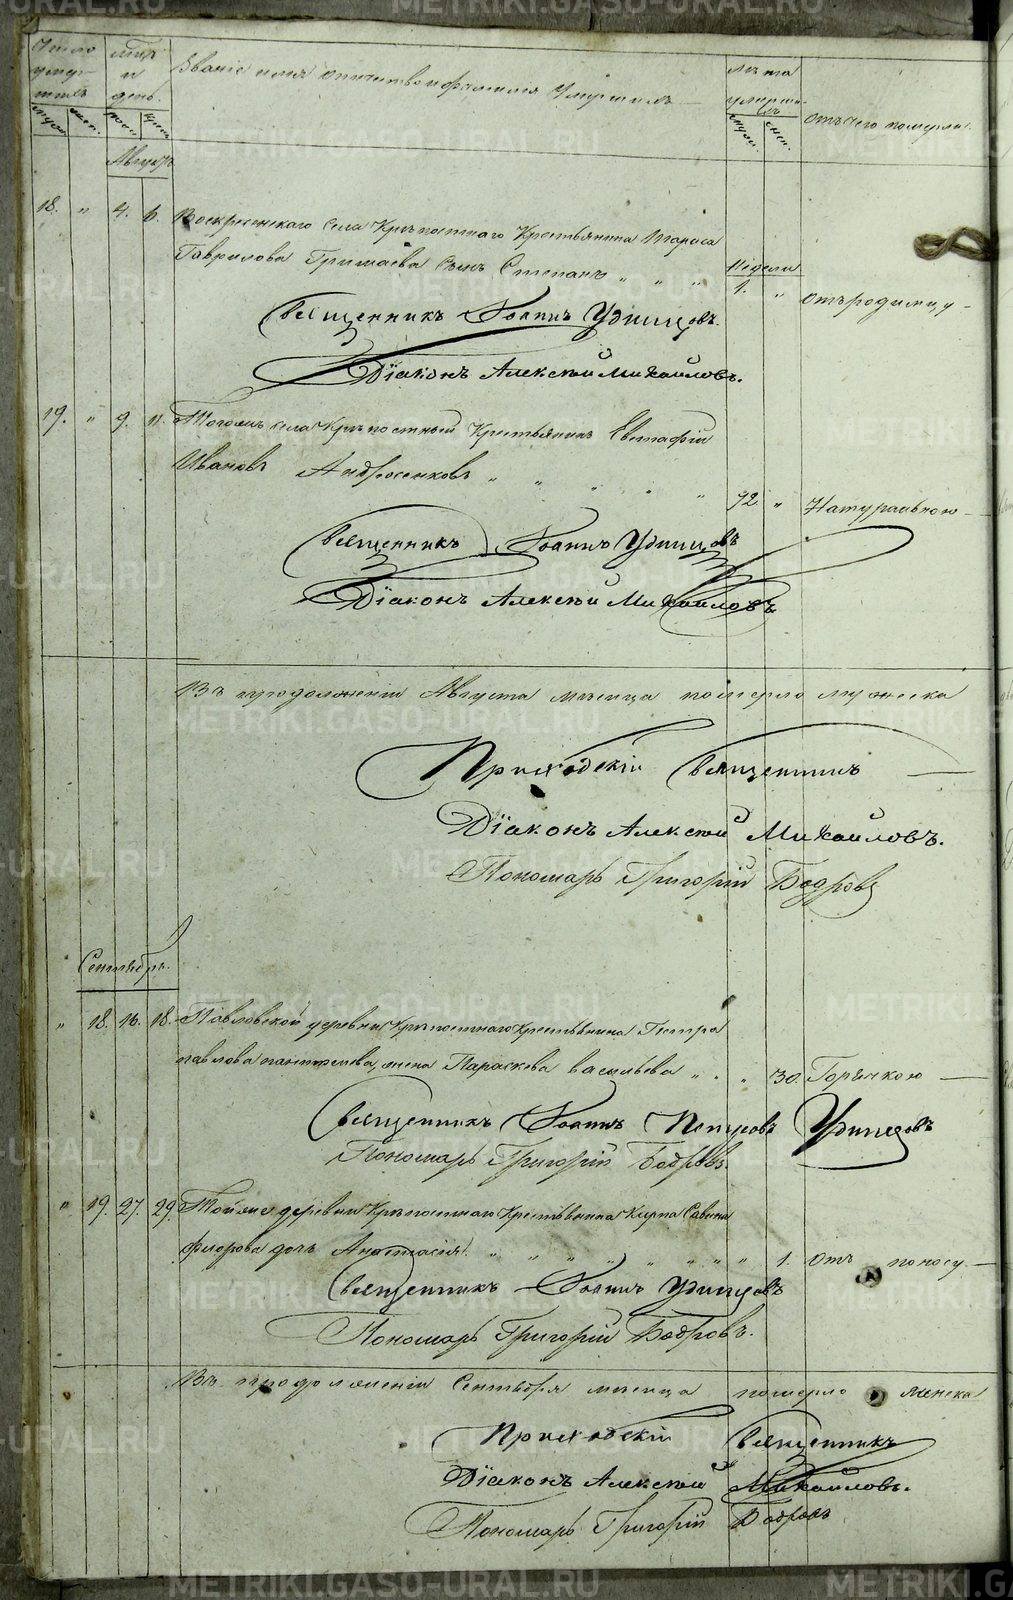 Число умершихъ
Мѣс. и день.
Званіе имя отчество и фамилія Умершихъ
лѣта умершихъ
отъ чего померли.
муж. жен.
муж. жен.
Августъ
18. " 4. 6. Воскресенскаго села Крѣпостнаго Крестьянина Тараса
Гаврилова сынъ Степанъ " " " Недели 1. " отъ родимцу
Священникъ Іоаннъ Удинцовъ.
Діаконъ Алексѣй Михайловъ.
19. " 9. 11. Тогожъ села Крѣпостный Крестьянинъ Евстафій
Ивановъ Андросенковъ " " " " " 92. " Натуральною
Священникъ Іоаннъ Удинцовъ
Діаконъ Алексѣй Михайловъ
Въ продолженіи Августа мѣсяца померло мужеска
Приходскій Священникъ
Діаконъ Алексѣй Михайловъ.
Пономарь Григорій Бодровъ
Сентябрь.
" 18. 16. 18. Павловской деревни Крѣпостнаго Крестьянина Петра
павлова жена Параскева васильева " " " 30. Горячкою
Священникъ Іоаннъ Удинцовъ
Пономарь Григорій Бодровъ.
" 19. 27. 29. Тойже деревни Крѣпостнаго Крестьянина Карпа Савина
флорова дочь Анастасія. " " " " " " " 1. отъ поносу.
Священникъ Іоаннъ Удинцовъ
Пономарь Григорій Бодровъ.
Въ продолженіи Сентября мѣсяца померло женска
Приходскій Священникъ
Діаконъ Алексѣй Михайловъ.
Пономарь Григорій Бодровъ
METRIKI.GASO-URAL.RU